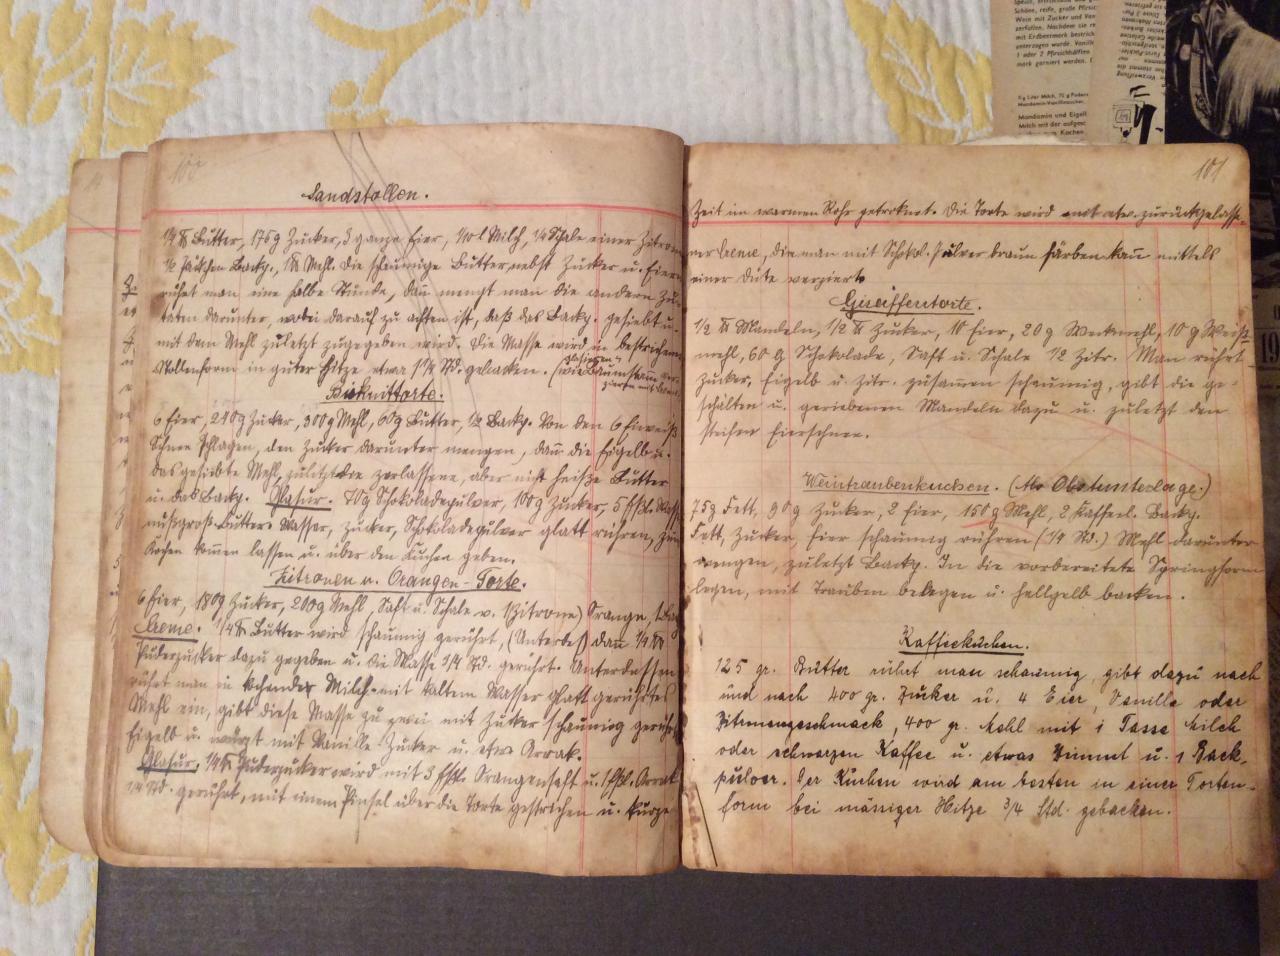 100
Sandstollen.
1/4 ℔ Butter, 175g Zucker, 3 ganze Eier, 1/10 l Milch, 1/4 Schale einer Zitrone
1/2 Päckchen Backp., 1 ℔ Mehl. Die schaumige Butter nebst Zucker u. Eiern
rührt man eine halbe Stunde, dañ mengt man die anderen Zu-
taten darunter, wobei darauf zu achten ist, daß das Backp. gesiebt u.
mit dem Mehl zuletzt zugegeben wird. Die Masse wird in bestrichener
Stollenform in guter Hitze etwa 1 1/4 Std. gebacken. (wie Baumstam̄
Biskuittorte.
6 Eier, 240g Zucker, 300g Mehl, 60g Butter, 1/2 Backp. Von den 6 Eiweiß
Schnee schlagen, den Zucker darunter mengen, dañ die Eigelb u.
das gesiebte Mehl, zuletzt die zerlassene, aber nicht heiße Butter
u. das Backp. Glasur. 70g Schokoladepulver, 100g Zucker, 5 Eßl. Wasser
nußgroß Butter. Wasser, Zucker, Schokoladepulver glatt rühren, zum
Kochen kom̄en lassen u. über den Kuchen geben.
Zitronen u. Orangen-Torte.
6 Eier, 180g Zucker, 200g Mehl, Saft u. Schale v. 1 Zitrone) Orange, 1 Backp.
Creme. 1/4 ℔ Butter wird schaumig gerührt, dañ 1/4 ℔
Puderzucker dazu gegeben u. die Masse 1/4 Std. gerührt. Unterdessen
rührt man in kochender Milch mit kaltem Wasser glatt gerührtes
Mehl ein, gibt diese Masse zu zwei mit Zucker schaumig gerührten
Eigelb u. würzt mit Vanille-Zucker u. etw. Arrak.
Glasur. 1/4 ℔ Puderzucker wird mit 3 Eßl. Orangensaft u. 1 Eßl. Arrak
1/4 Std. gerührt, mit einem Pinsel über die Torte gestrichen u. kurze
101
Zeit im warmen Rohr getroknet. Die Torte wird mit etw. zurückgelasse-
ner Creme, die man mit Schok. Pulver braun färben kañ mittels
einer Düte verziert
Greiffentorte.
1/2 ℔ Mandeln, 1/2 ℔ Zucker, 10 Eier, 20g Weckmehl, 10g Weiß-
mehl, 60g Schokolade, Saft u. Schale 1/2 Zitr. Man rührt
Zucker, Eigelb u. Zitr. zusam̄en schaumig, gibt die ge-
schälten u. geriebenen Mandeln dazu u. zuletzt den
steifen Eierschnee.
Weintraubenkuchen. (Als Obstunterlage.)
75g Fett, 90g Zucker, 2 Eier, 150g Mehl, 2 Kaffeel. Backp.
Fett, Zucker, Eier schaumig rühren (1/4 Std.) Mehl darunter
mengen, zuletzt Backp. In die vorbereitete Springform
legen, mit Trauben belegen u. hellgelb backen.
Kaffeekuchen.
125 gr. Butter rührt man schaumig gibt dazu nach
und nach 400 gr. Zucker u. 4 Eier, Vanille oder
Zitronengeschmack, 400 gr. Mehl mit 1 Tasse Milch
oder schwarzen Kaffee u. etwas Zimmt u. 1 Back-
pulver. Der Kuchen wird am besten in einer Torten-
form bei mässiger Hitze 3/4 Std. gebacken.
Schöne, reife, große Pfirsic
Wein mit Zucker und Van
zerfallen. Nachdem sie
mit Erdbeermark bestrich
unterzogen wurde. Vanill
1 oder 2 Pfirsichhälften
mark garniert werden.
Liter Milch, 75 g Puderz
Mondamin-Vanillezucker,
Mondamin und Eigelb
Milch mit der aufgesc